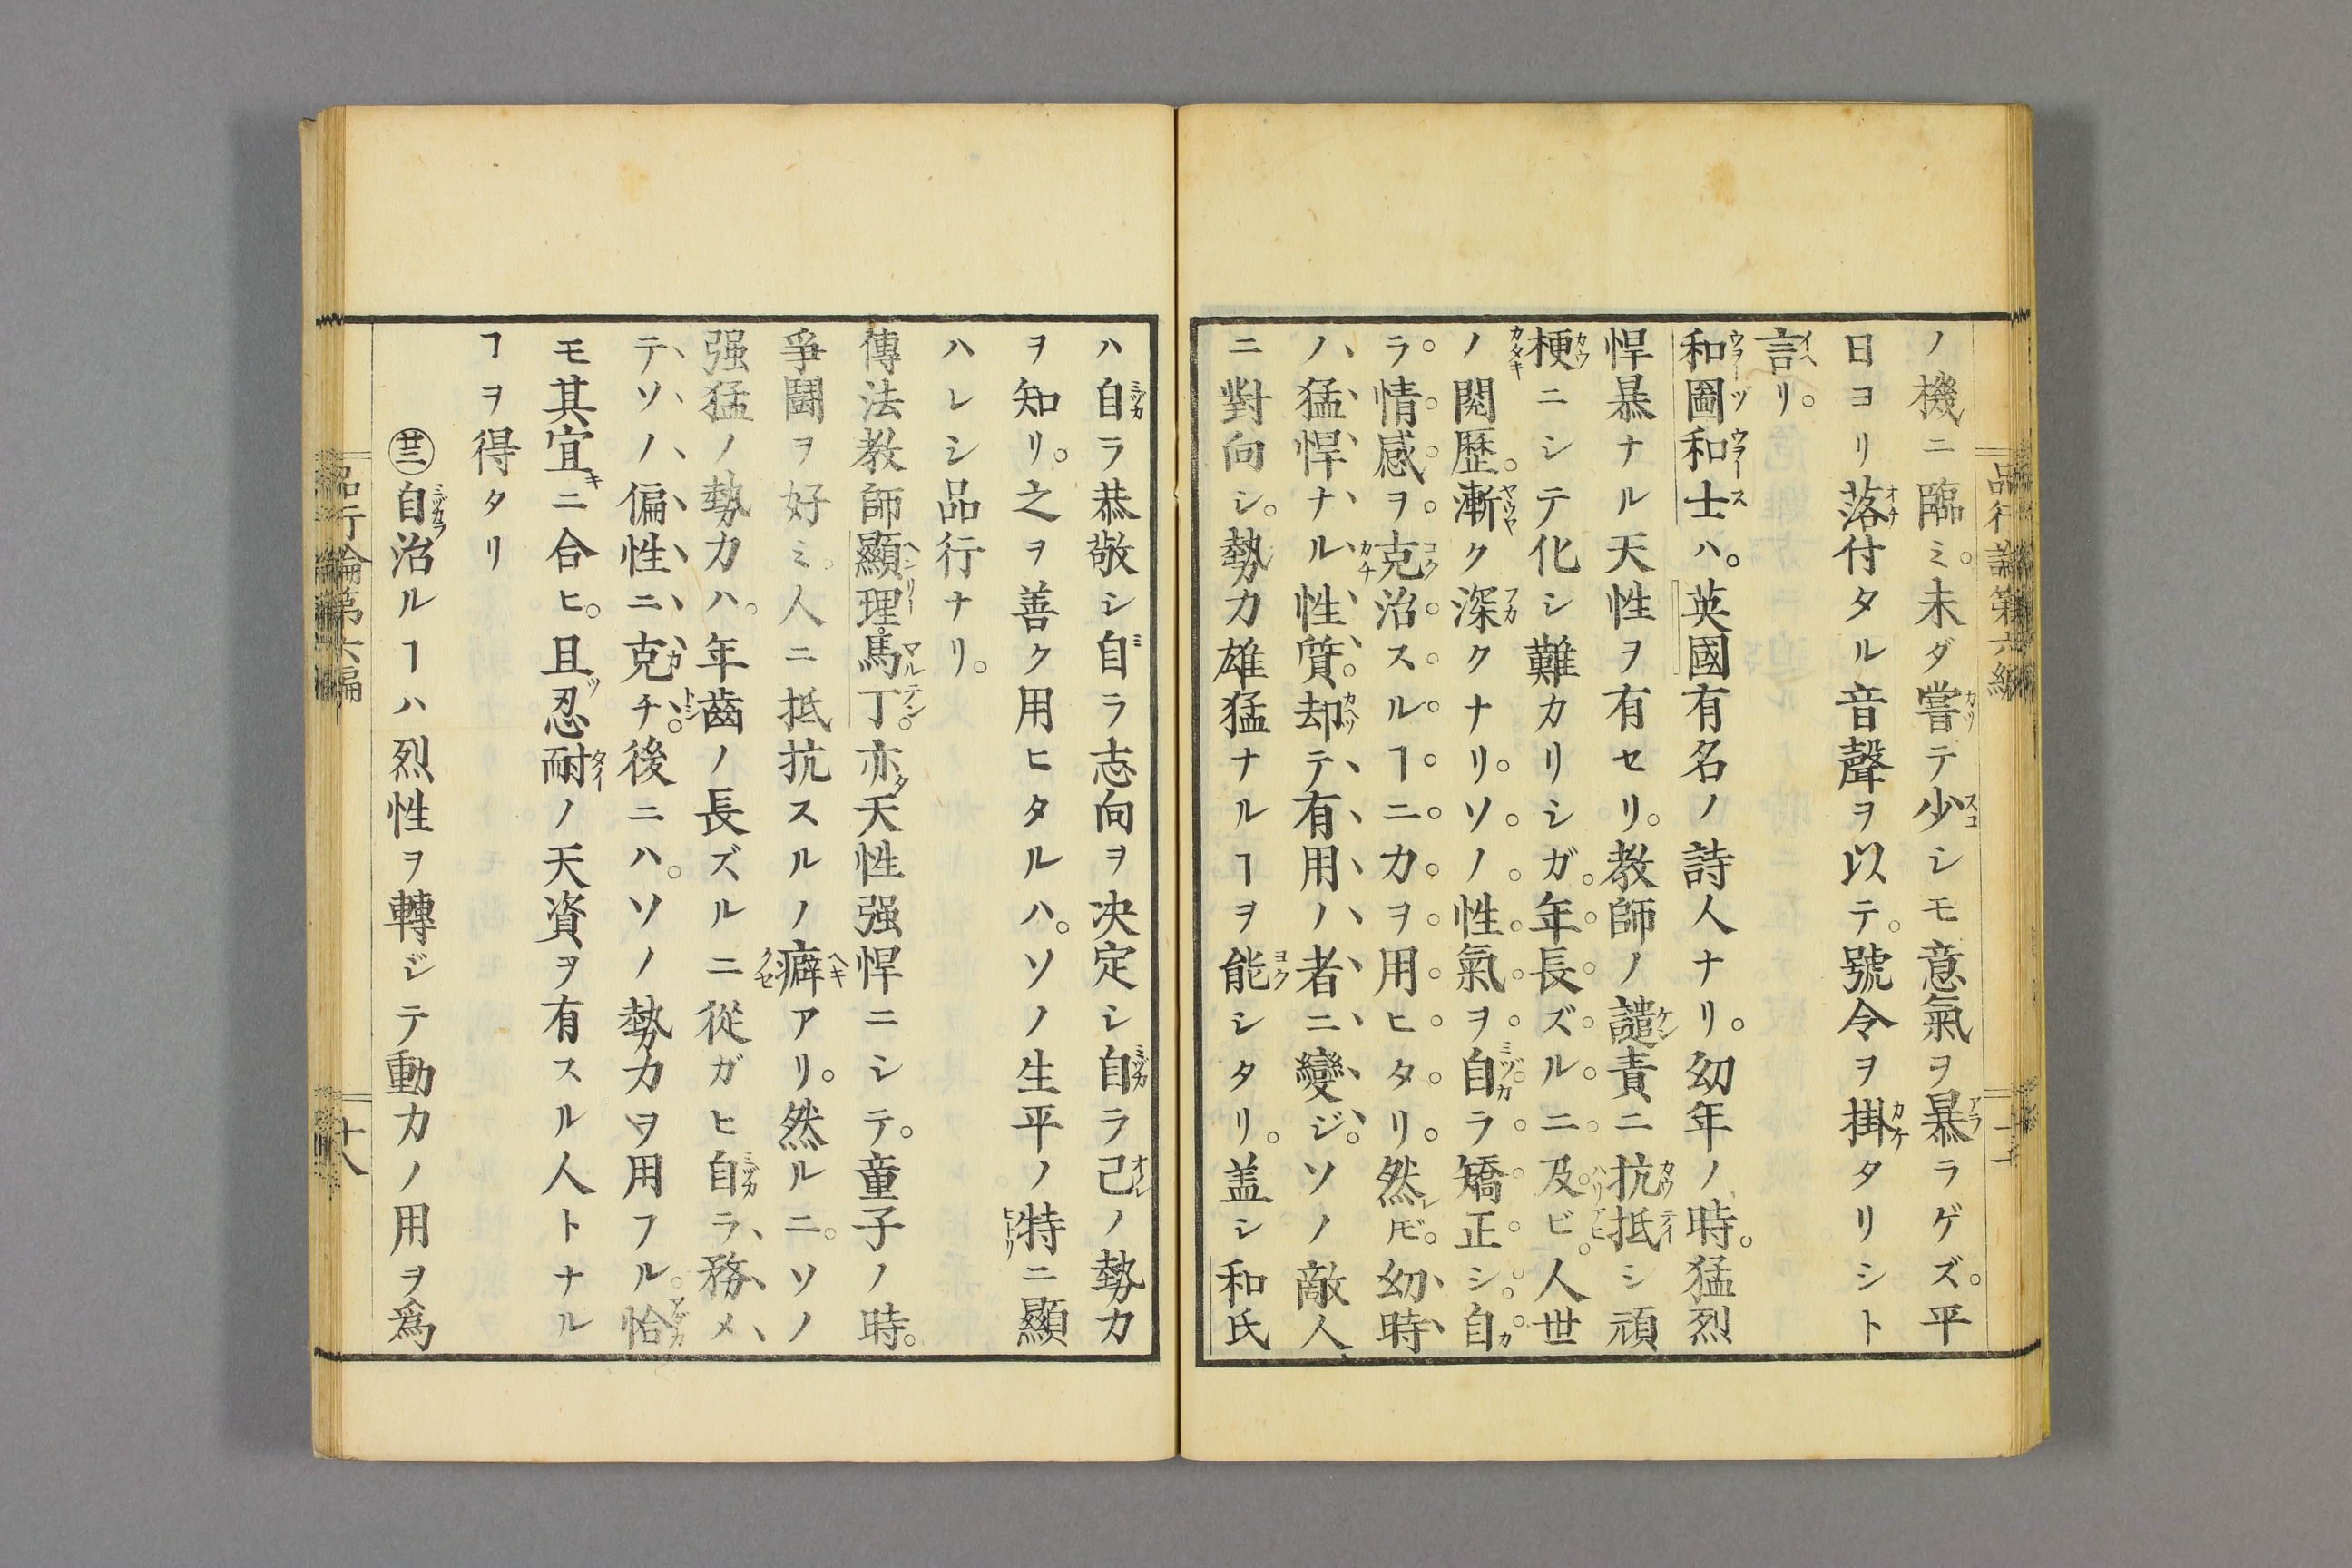 ノ機ニ臨ミ。未ダ嘗テ少シモ意氣ヲ暴ラゲズ。平
日ヨリ落付タル音聲ヲ以テ。號令ヲ掛タリシト
言リ。
和圖和士ハ。英國有名ノ詩人ナリ。幼年ノ時。猛烈
悍暴ナル天性ヲ有セリ。教師ノ譴責ニ抗抵シ頑
梗ニシテ化シ難カリシガ。年長ズルニ及ビ。人世
ノ閲歴。漸ク深クナリ。ソノ性氣ヲ自ラ矯正シ。自
ラ情感ヲ克治スルヿニ力ヲ用ヒタリ。然𪜈。幼時
ノ猛悍ナル性質。却テ有用ノ者ニ變ジ。ソノ敵人
ニ對向シ。勢力雄猛ナルヿヲ能シタリ。盖シ和氏
ハ自ラ恭敬シ自ラ志向ヲ決定シ自ラ己ノ勢力
ヲ知リ。之ヲ善ク用ヒタルハ。ソノ生平ノ特ニ顯
ハレシ品行ナリ。
傳法教師顯理馬丁。亦天性强悍ニシテ。童子ノ時。
爭鬪ヲ好ミ。人ニ抵抗スルノ癖アリ。然ルニ。ソノ
强猛ノ勢力ハ。年齒ノ長ズルニ從ガヒ自ラ務メ
テソノ偏性ニ克チ。後ニハ。ソノ勢力ヲ用フル。恰
モ其宜ニ合ヒ。且忍耐ノ天資ヲ有スル人トナル
ヿヲ得タリ
㊁自治ルヿハ烈性ヲ轉ジテ動力ノ用ヲ爲
品行論第六編
十八